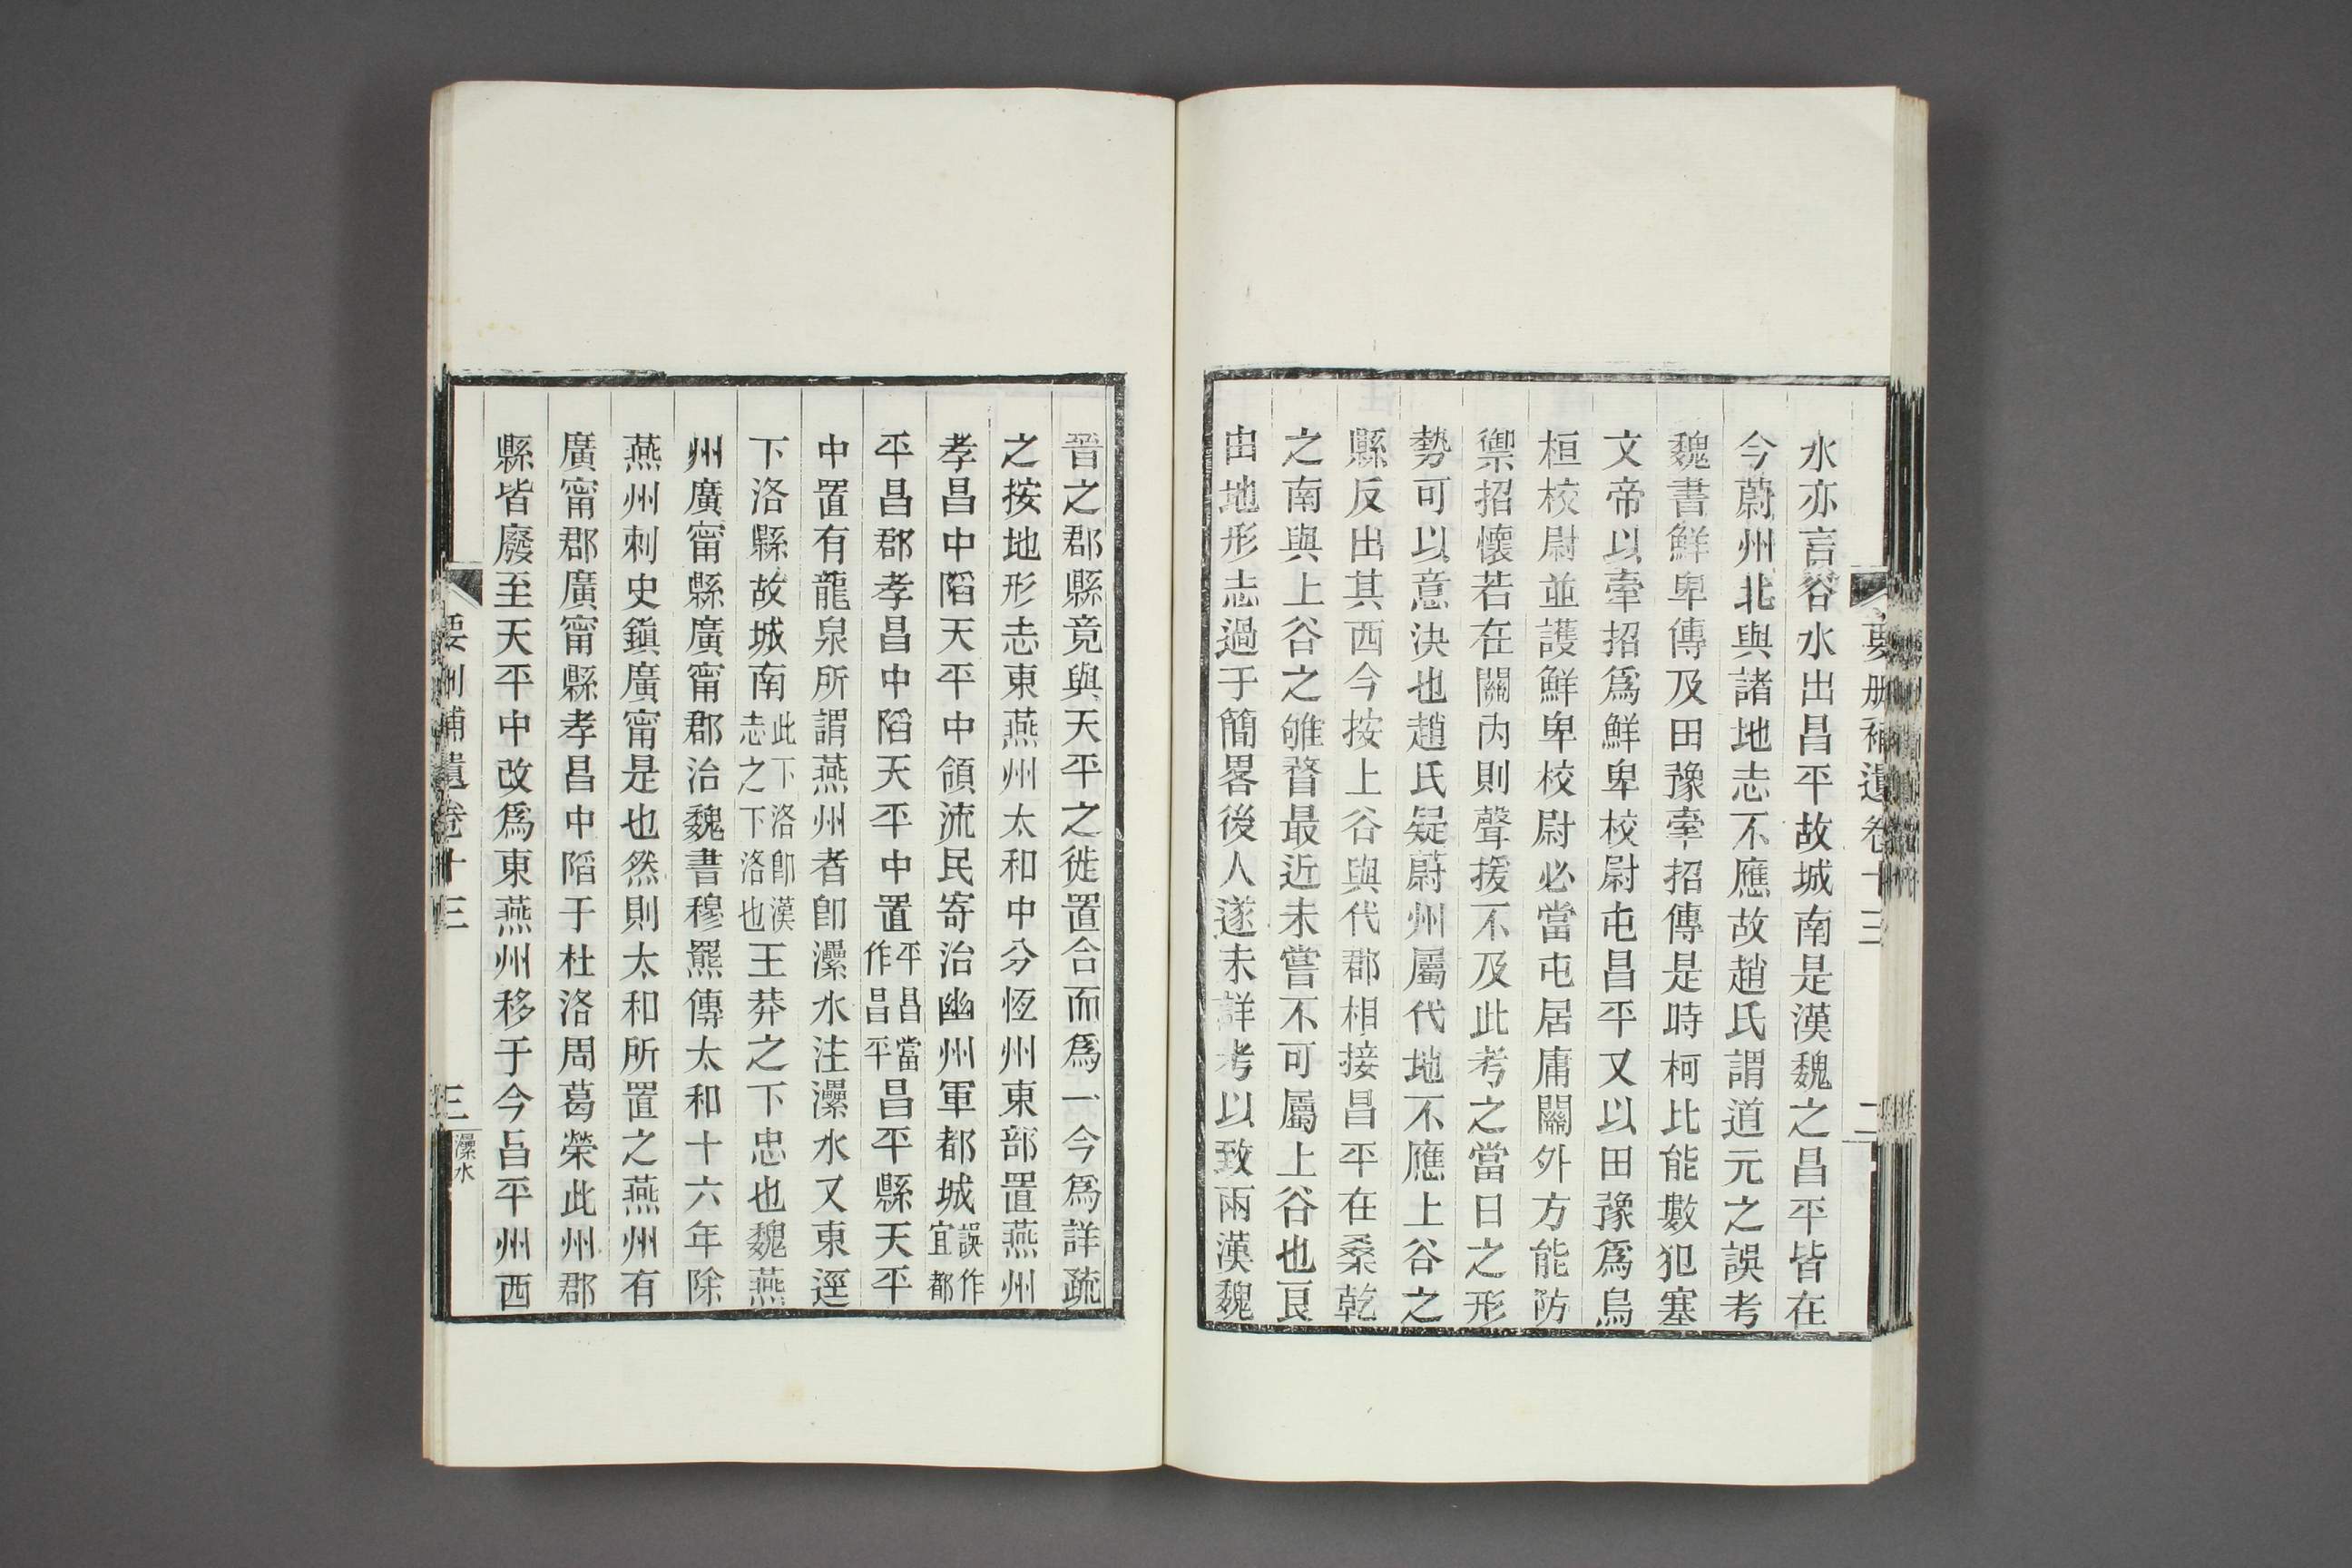 水亦言谷水出昌平故城南是漢魏之昌平皆在
今蔚州北與諸地志不應故趙氏謂道元之誤考
魏書鮮卑傳及田豫牽招傳是時柯比能數犯塞
文帝以牽招爲鮮卑校尉屯昌平又以田豫爲烏
桓校尉並護鮮卑校尉必當屯居庸關外方能防
禦招懷若在關內則聲援不及此考之當日之形
勢可以意決也趙氏疑蔚州屬代地不應上谷之
縣反出其西今按上谷與代郡相接昌平在桑乾
之南與上谷之雊瞀最近未嘗不可屬上谷也良
由地形志過于簡畧後人遂未詳考以致兩漢魏
要刪補遺卷十三
二
晉之郡縣竟與天平之徙置合而爲一今爲詳疏
之按地形志東燕州太和中分恆州東部置燕州
孝昌中陷天平中領流民寄治幽州軍都城誤作宜都
平昌郡孝昌中陷天平中置平昌當作昌平昌平縣天平
中置有龍泉所謂燕州者卽㶟水注㶟水又東逕
下洛縣故城南此下洛卽漢志之下洛也王莽之下忠也魏燕
州廣甯縣廣甯郡治魏書穆羆傳太和十六年除
燕州刺史鎮廣甯是也然則太和所置之燕州有
廣甯郡廣甯縣孝昌中陷于杜洛周葛榮此州郡
縣皆廢至天平中改爲東燕州移于今昌平州西
要刪補遺卷十三
三
㶟水